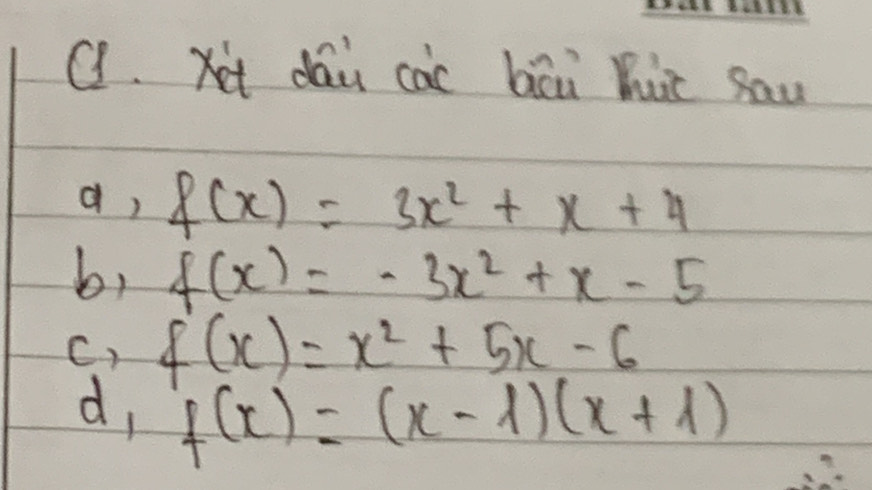 C1. Xét dấu các biểu thức sau
a, f(x) = 3x² + x + 4
b, f(x) = - 3x² + x - 5
c, f(x) = x² + 5x - 6
d, f(x) = (x - 1)(x + 1)